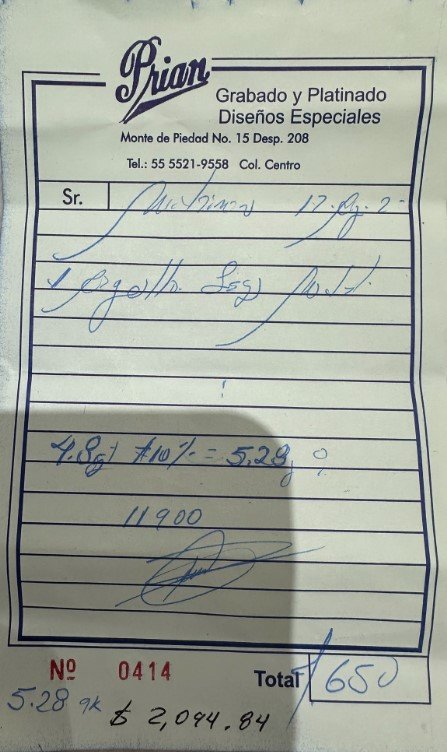 Prian
Grabado y Platinado
Diseños Especiales
Monte de Piedad No. 15 Desp. 208
Tel.: 55 5521-9558 Col. Centro
Sr.
4.8g +10% = 5.28g
11900
Nº 0414
Total $650
5.28 gk $ 2,094.84